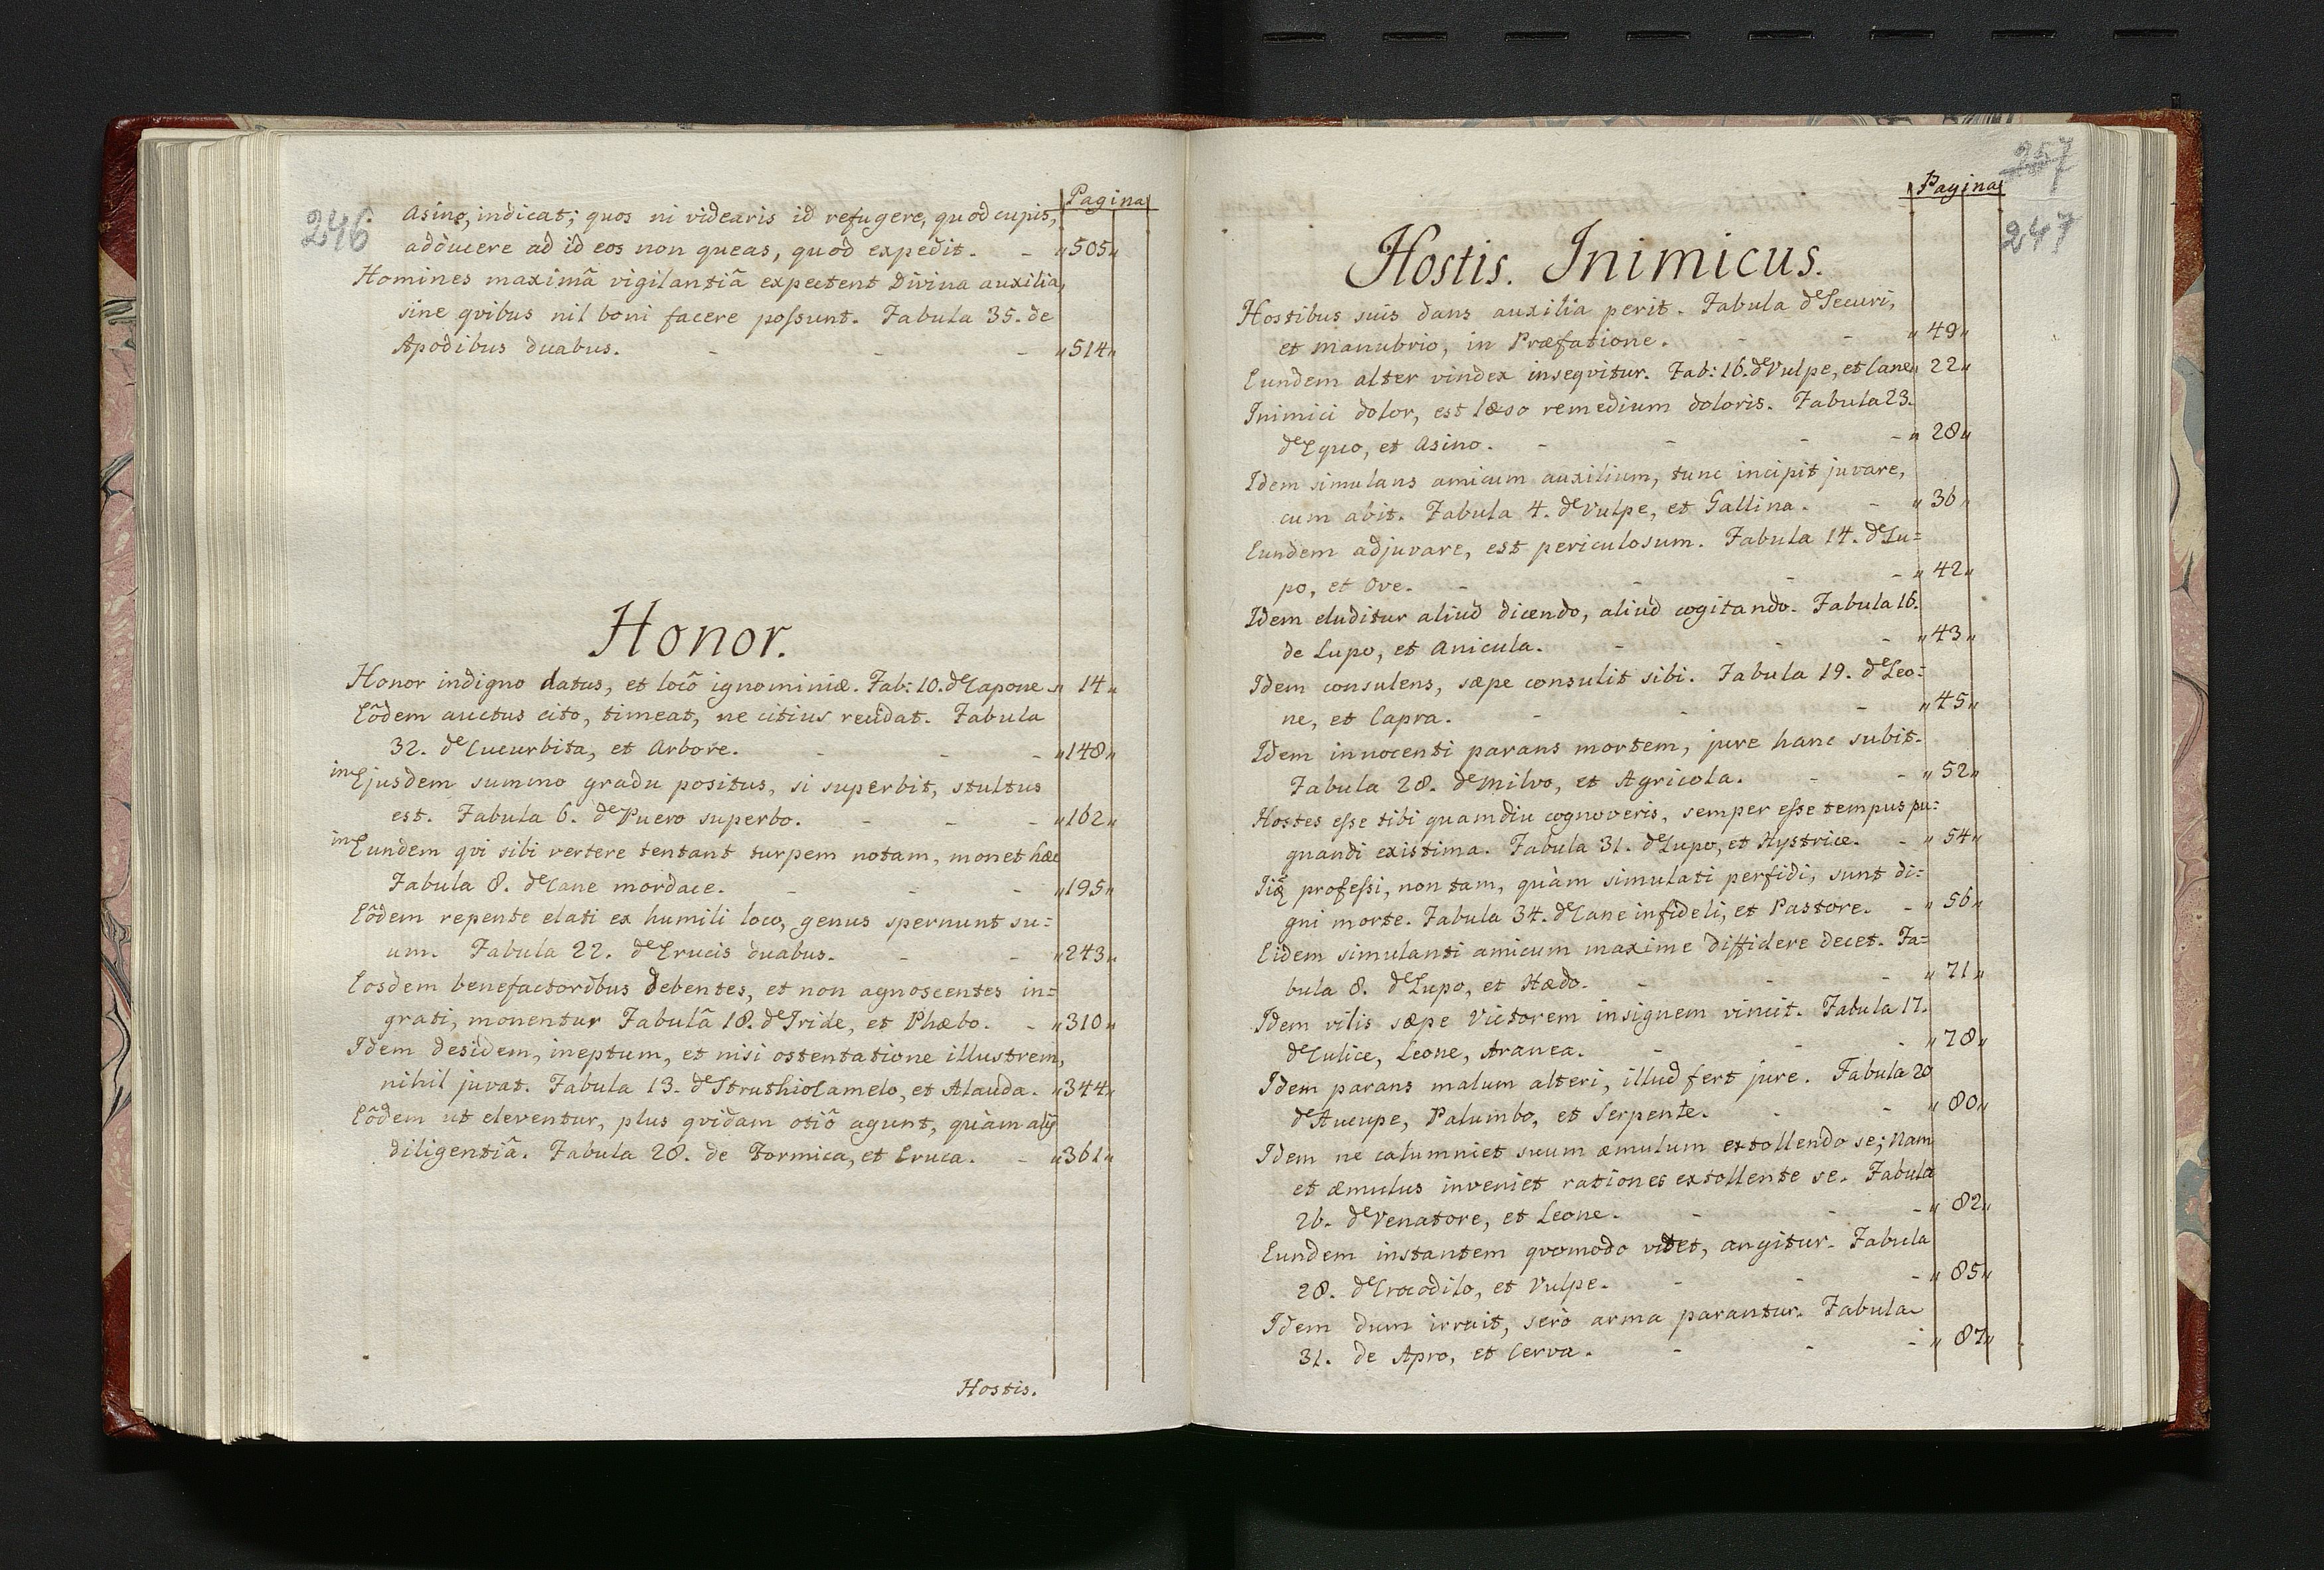 246
Pagina
Asino, indicat; quos ni videaris id refugere, quod cupis,
adducere ad id eos non queas, quod expedit. - „505„
Homines maximâ vigilantiâ expectent Divina auxilia,
sine qvibus nil boni facere poſsunt. Fabula 35. de
Apodibus duabus. - - - „514„
Honor.
Honor indigno datus, et locô ignominiæ. Fab: 10. de Capone. „14„
Eôdem auctus cito, timeat, ne citius recidat. Fabula
32. de Cucurbita, et Arbore. - - - „148„
in Ejusdem summo gradu positus, si superbit, stultus
est. Fabula 6. de Puero superbo. - - - „162„
in Eundem qvi sibi vertere tentant turpem notam, monet hæc
Fabula 8. de Cane mordace. - - - „195„
Eôdem repente elati ex humili loco, genus spernunt su=
um. Fabula 22. de Erucis duabus. - - „243„
Eosdem benefactoribus debentes, et non agnoscentes in=
grati, monentur Fabulâ 18. de Iride, et Phæbo. - „310„
Idem desidem, ineptum, et nisi ostentatione illustrem,
nihil juvat. Fabula 13. de StruthioCamelo, et Alauda. „344„
Eôdem ut eleventur, plus qvidam otiô agunt, quàm alij
diligentiâ. Fabula 28. de Formica, et Eruca. - „361„
Hostis.
257
247
Pagina
Hostis. Inimicus.
Hostibus suis dans auxilia perit. Fabula de Securi,
et Manubrio, in Præfatione. - - „49„
Eundem alter vindex inseqvitur. Fab: 16. de Vulpe, et Cane „22„
Inimici dolor, est læso remedium doloris. Fabula 23.
de Equo, et Asino. - - - - „28„
Idem simulans amicum auxilium, tunc incipit juvare,
cum abit. Fabula 4. de Vulpe, et Gallina. - „36„
Eundem adjuvare, est periculosum. Fabula 14. de Lu=
po, et Ove. - - - - „42„
Idem eluditur aliud dicendo, aliud cogitando. Fabula 16.
de Lupo, et Anicula. - - - „43„
Idem consulens, sæpe consulit sibi. Fabula 19. de Leo=
ne, et Capra. - - - „45„
Idem innocenti parans mortem, jure hanc subit.
Fabula 28. de Milvo, et Agricola. - - „52„
Hostes eſse tibi quamdiu cognoveris, semper eſse tempus pu=
gnandi existima. Fabula 31. de Lupo, et Hystrice. - „54„
Iiq́; profeſsi, non tam, quàm simulati perfidi, sunt di=
gni morte. Fabula 34. de Cane infideli, et Pastore. - „56„
Eidem simulanti amicum maxime diffidere decet. Fa=
bula 8. de Lupo, et Hædo. - - - „71„
Idem vilis sæpe Victorem insignem vincit. Fabula 17.
de Culice, Leone, Aranea. - - - „78„
Idem parans malum alteri, illud fert jure. Fabula 20
de Aucupe, Palumbo, et Serpente. - - „80„
Idem ne calumniet suum æmulum extollendo se; Nam
et æmulus inveniet rationes extollente se. Fabula
26. de Venatore, et Leone. - - - „82„
Eundem instantem qvomodo vitet, angitur. Fabula
28. de Crocodilo, et Vulpe. - - - „85„
Idem dum irruit, serò arma parantur. Fabula
31. de Apro, et Cerva. - - - „87„